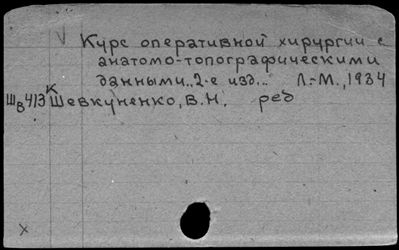 V Курс оперативной хирургии с
анатомо-топографическими
данными.. 2-е изд... Л.-М., 1934
К
Шв413 Шевкуненко, В.Н. ред
x